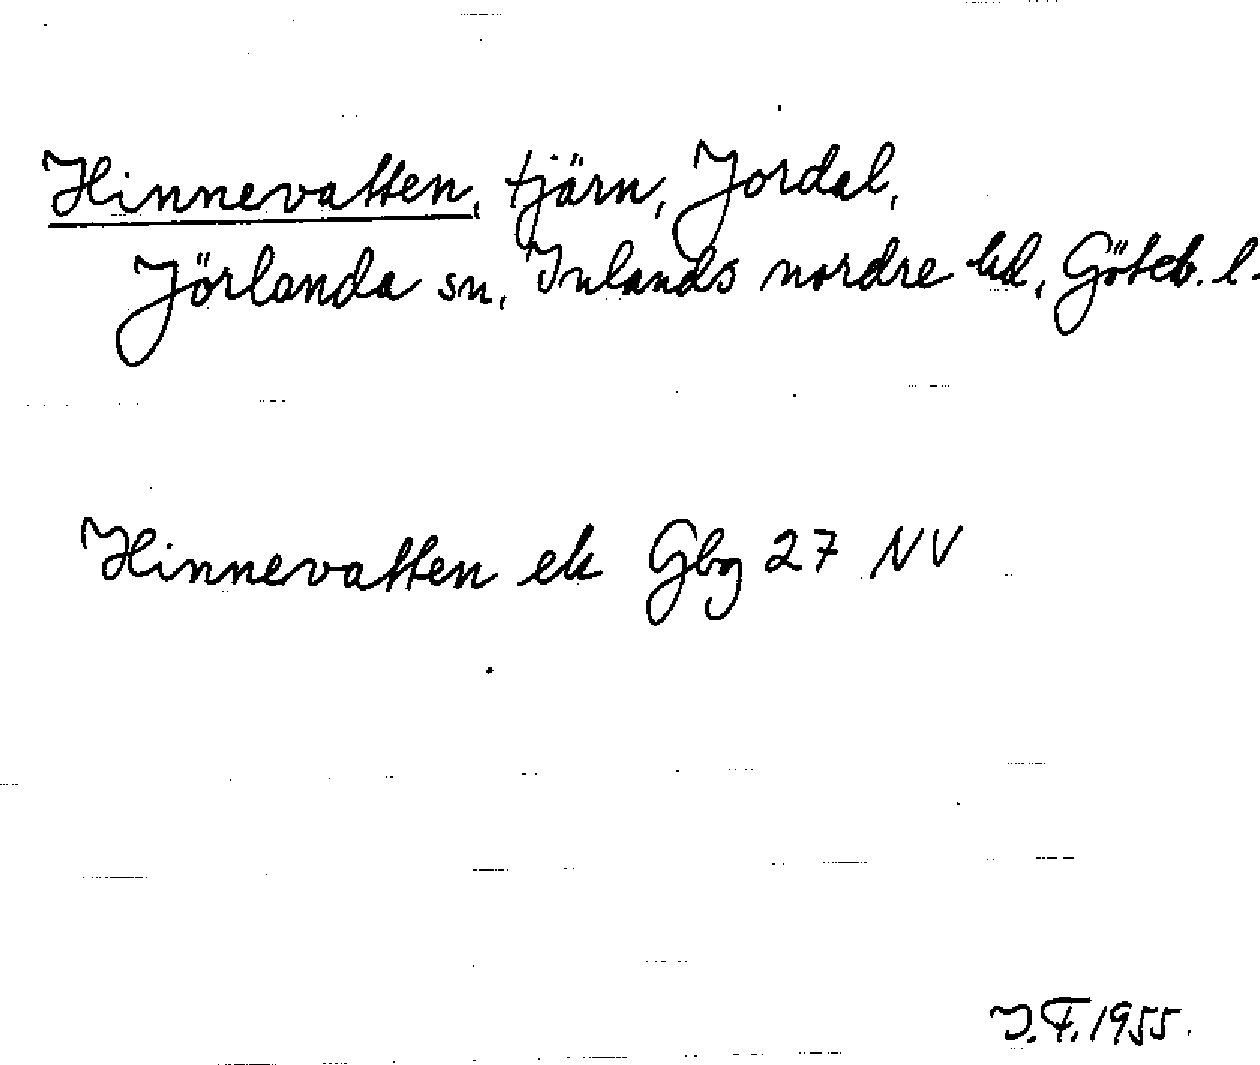 Hinnevatten, tjärn, Jordal,
Jörlanda sn, Inlands nordre hd, Göteb. l.
Hinnevatten ek Gbg 27 NV
I.F. 1955.